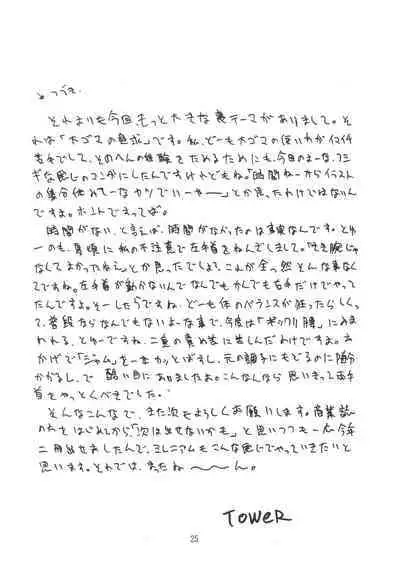 とつづき。
それよりも今回もっと大きな裏テーマがありまして。そ
れは「大ゴマの追求」です。私、どーも大ゴマの使いわけがイマイチ
苦手でして、そのへんの経験をためるためにも、今回のよーな、フシ
ギな感じのマンガにしたんですけれどもね。「時間ねーからイラスト
の集合体みてーなヤツでいーやーー」とか思ったわけではないん
ですよ。ホントですってば。
時間がない、と言えば、時間がなかったのは事実なんです。とゆ
ーのも、月頃に私の不注意で左手首をねんざしまして。「利き腕じゃ
なくてよかったねぇ」とか思ったでしょう、これが全っ然そんな事なく
てですね。左手首が動かないんでなんでもかんでも右手だけでやって
たんですよ。そーしたらですね、どーも体のバランスが狂ったらしくっ
て、普段ならなんでもないよーな事で、今度は「ギックリ腰」にみま
われる、とゆーですね、二重の責め苦に苦しんだわけですよ。お
かげで「ジャム」を一本カッとばすし、元の調子にもどるのに随分
かかるし、で 酷い目にあいましたよ。こんなんなら思いきって両手
首をやっとくべきでした。
そんなこんなで、また次もよろしくお願いします。商業誌
のをはじめてから「次は出せないかも」と思いつつも一応今年
二冊出せましたんで、ミレニアムもこんな感じでやっていきたいと
思います。それでは、まったね〜〜ん。
TOWER
25